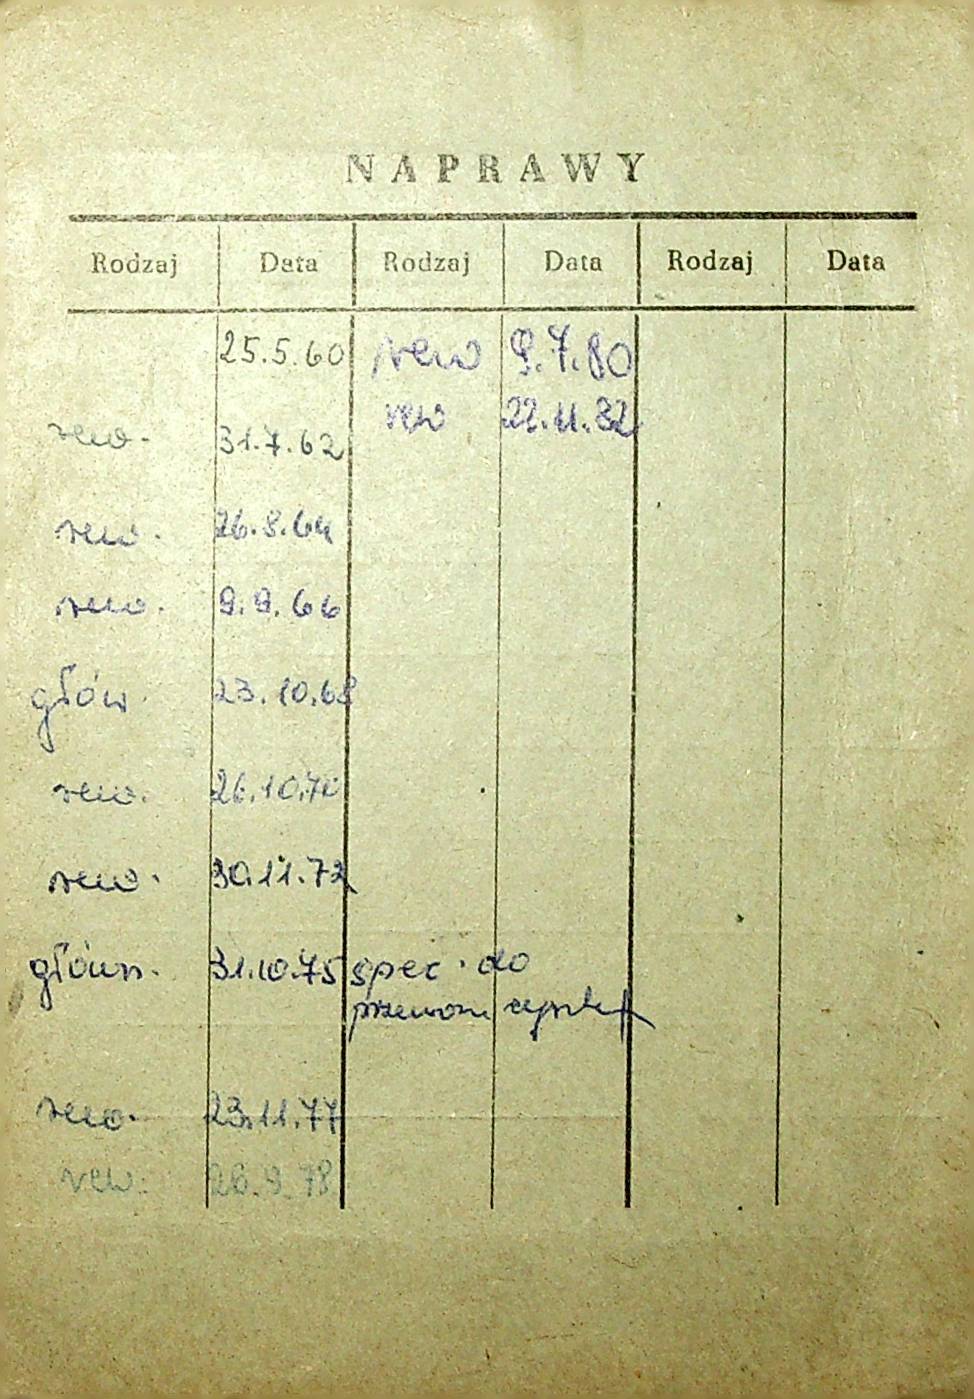 NAPRAWY
Rodzaj Data Rodzaj Data Rodzaj Data
25.5.60 rew 9.7.80
rew 22.11.82
rew. 31.7.62
rew. 26.8.64
rew. 9.9.66
głów. 23.10.68
rew. 26.10.70
rew. 30.11.72
główn. 31.10.75 spec. do
przewozu
rew. 23.11.77
rew. 26.9.78